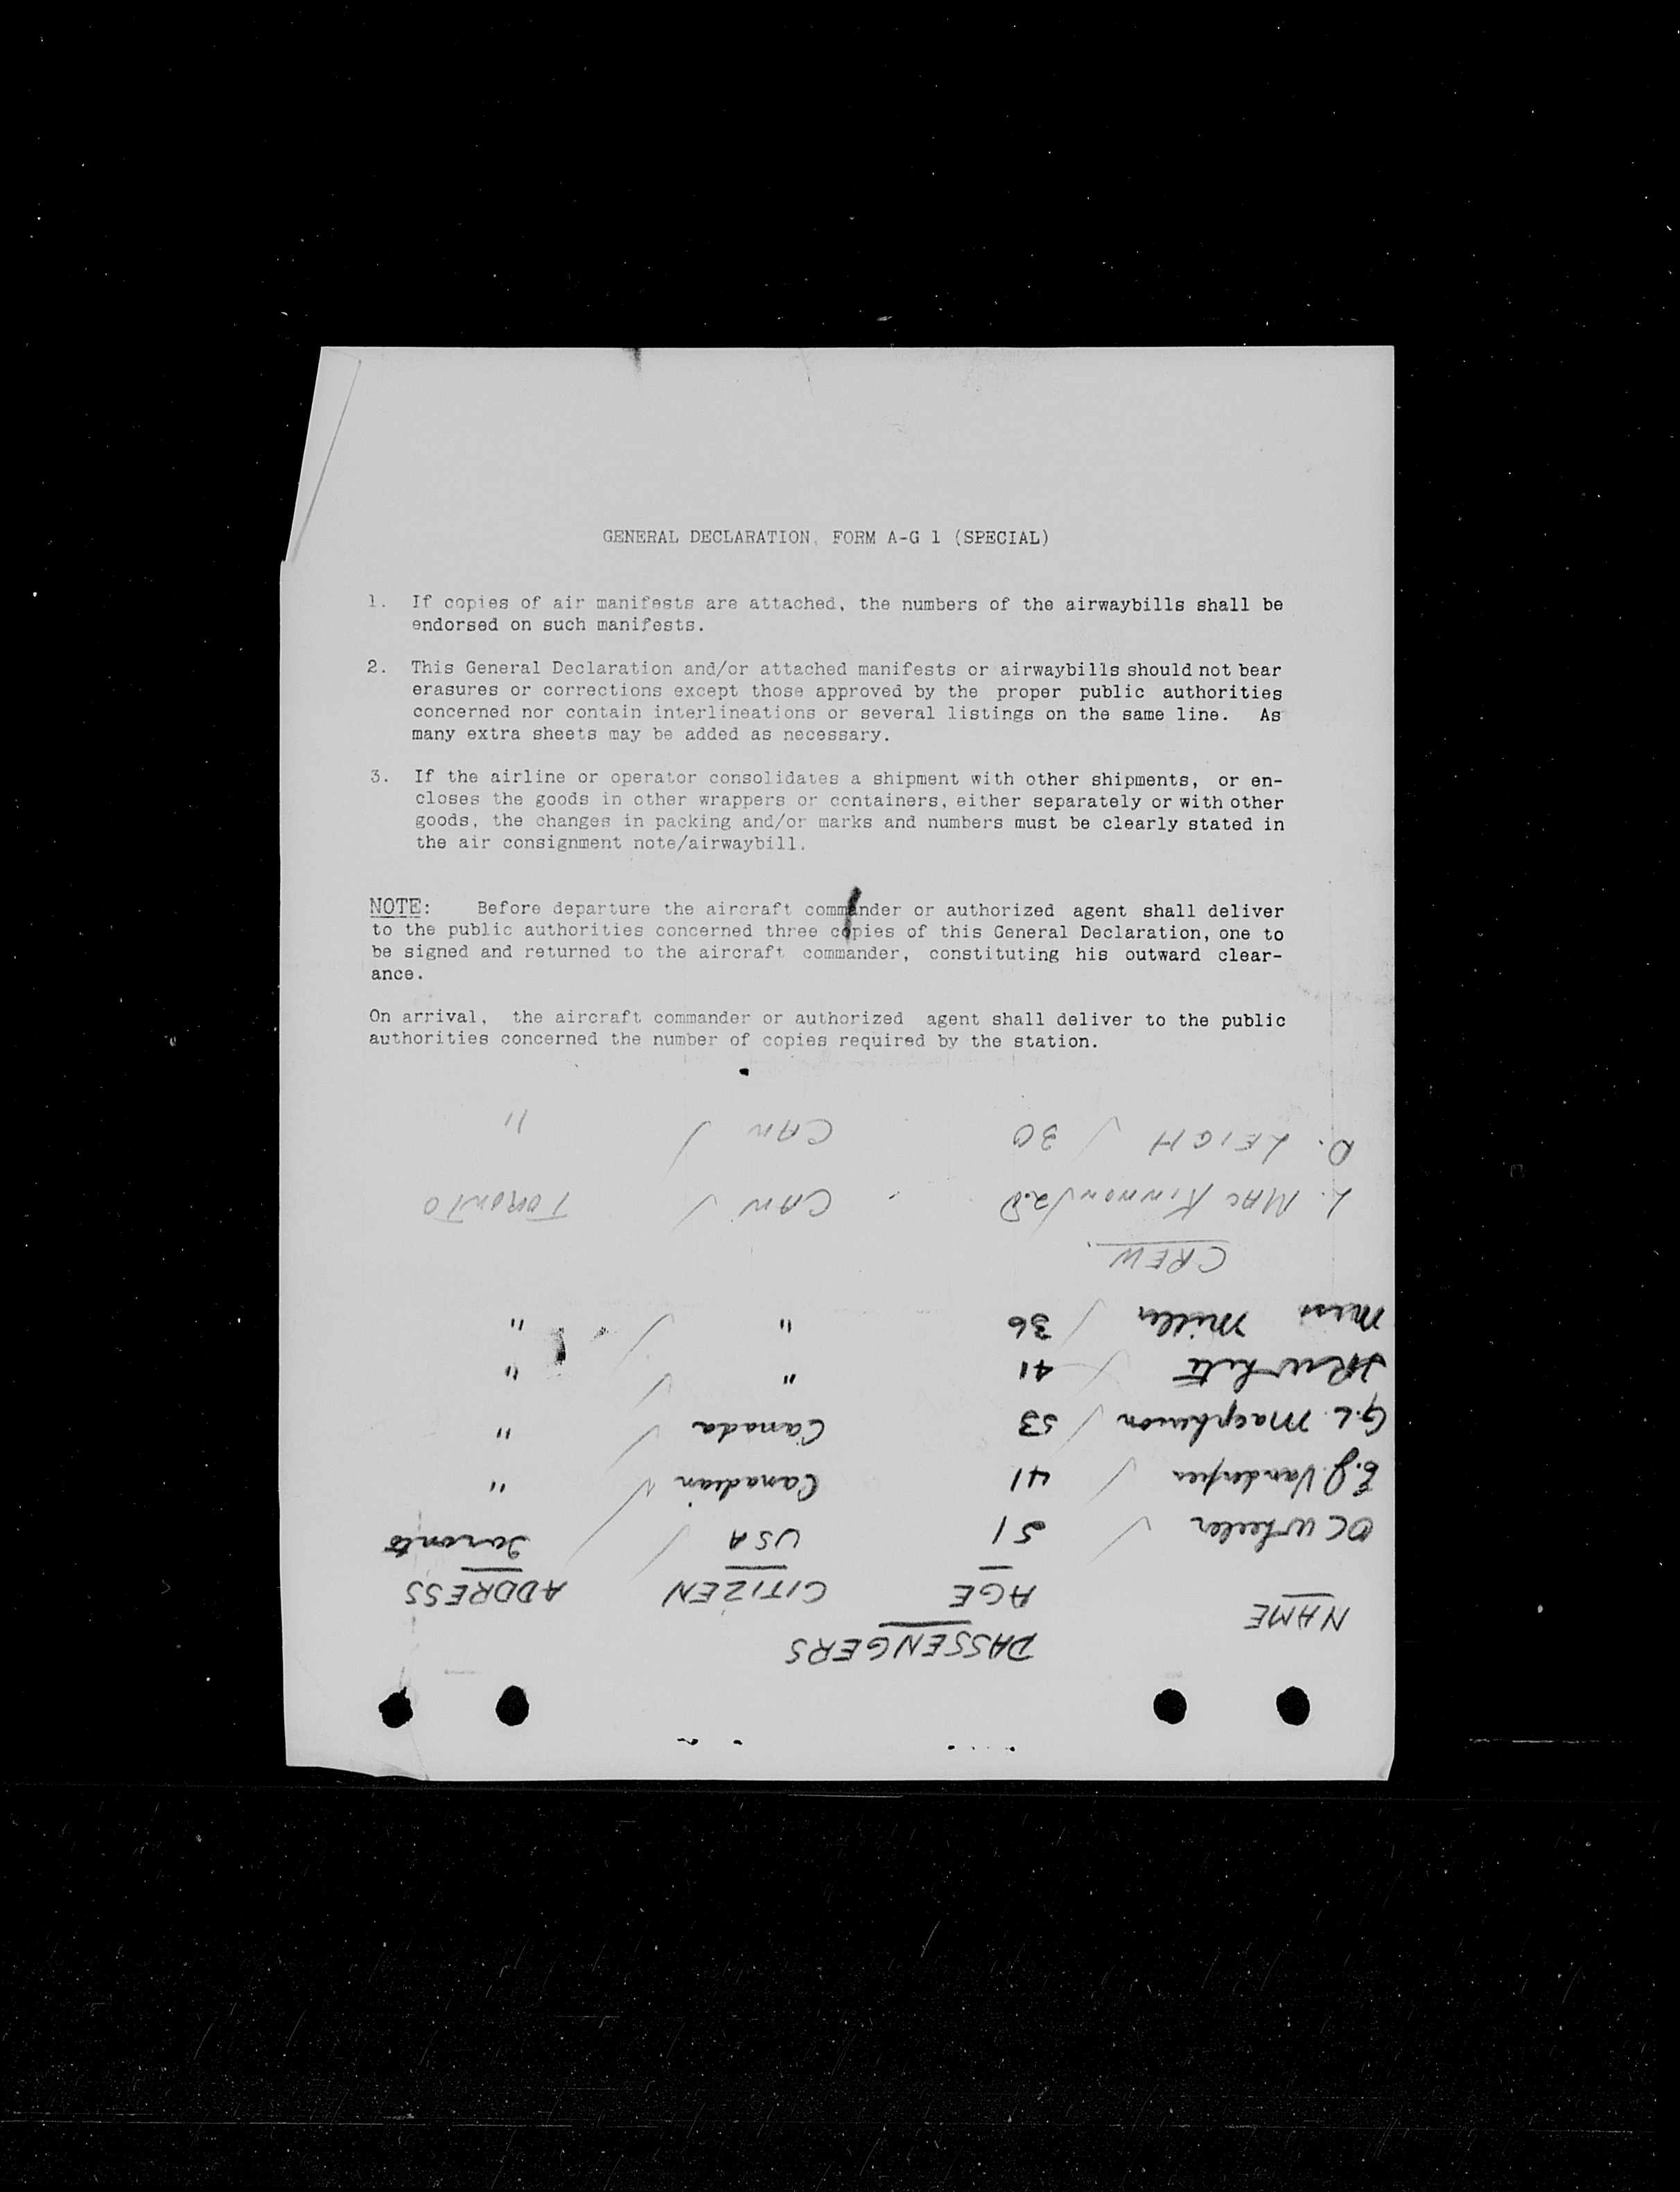 GENERAL DECLARATION, FORM A-G 1 (SPECIAL)
1. If copies of air manifests are attached, the numbers of the airwaybills shall be
endorsed on such manifests.
2. This General Declaration and/or attached manifests or airwaybills should not bear
erasures or corrections except those approved by the proper public authorities
concerned nor contain interlineations or several listings on the same line. As
many extra sheets may be added as necessary.
3. If the airline or operator consolidates a shipment with other shipments, or en-
closes the goods in other wrappers or containers, either separately or with other
goods, the changes in packing and/or marks and numbers must be clearly stated in
the air consignment note/airwaybill.
NOTE: Before departure the aircraft commander or authorized agent shall deliver
to the public authorities concerned three copies of this General Declaration, one to
be signed and returned to the aircraft commander, constituting his outward clear-
ance.
On arrival, the aircraft commander or authorized agent shall deliver to the public
authorities concerned the number of copies required by the station.
PASSENGERS
NAME AGE CITIZEN ADDRESS
OC Wheeler ✓ 51 USA ✓ Toronto
E.J. ✓ 41 Canadian ✓ "
G.L. Macpherson ✓ 53 Canada ✓ "
White ✓ 41 " ✓ "
Miss Miller ✓ 36 " ✓ "
CREW
L. MAC KINNON ✓ 28 CAN ✓ TORONTO
D. LEIGH ✓ 30 CAN ✓ "